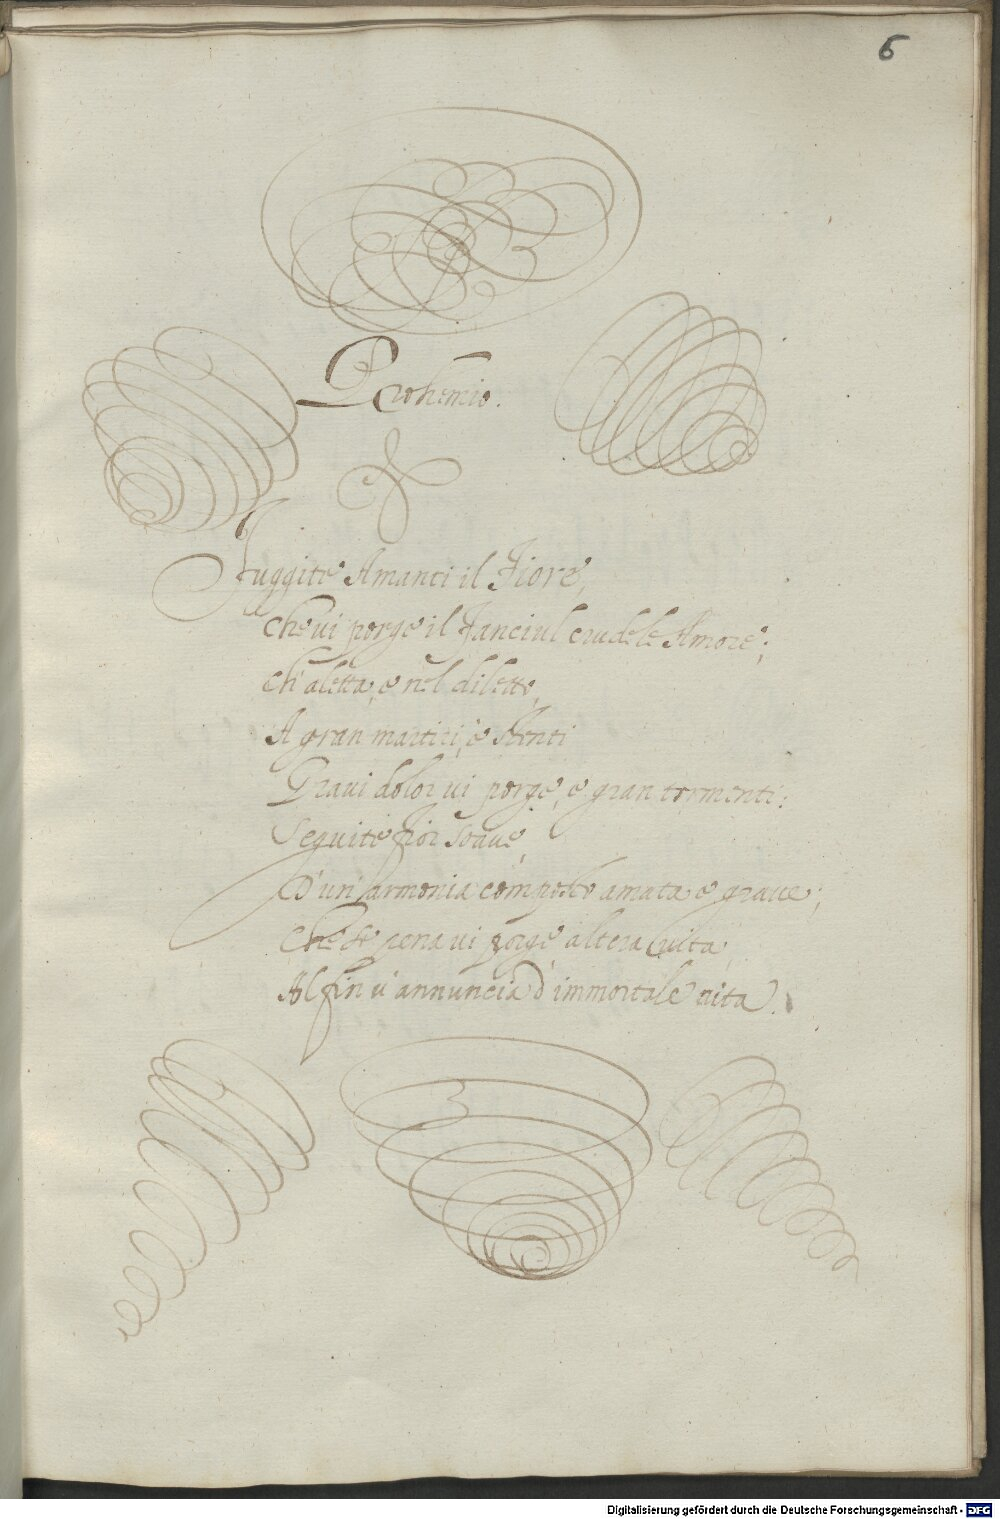 6
Prohemio.
Fuggite Amanti il Fiore,
che vi porge il Fanciul crudele Amore;
ch'aletta, e nel diletto,
A gran martiri, e stenti
Gravi dolor vi porge, e gran tormenti:
Seguite fior soave,
D'un'armonia composto amata e grave;
Che se pena vi porge altera vita,
Al fin v'annuncia d'immortale vita.
Digitalisierung gefördert durch die Deutsche Forschungsgemeinschaft - DFG